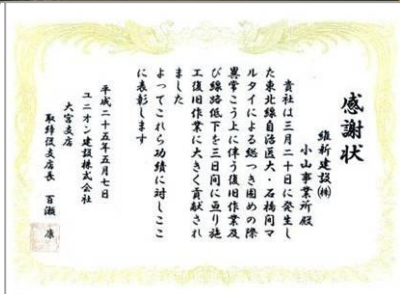 感謝状
維新建設㈱
小山事業所殿
貴社は三月二十日に発生し
た東北線自治医大・石橋間マ
ルタイによる総つき固めの際
異常こう上に伴う復旧作業及
び線路低下を三日間に亘り施
工復旧作業に大きく貢献され
ました
よってこれら功績に対しここ
に表彰します
平成二十五年五月七日
ユニオン建設株式会社
大宮支店
取締役支店長 百瀬 康